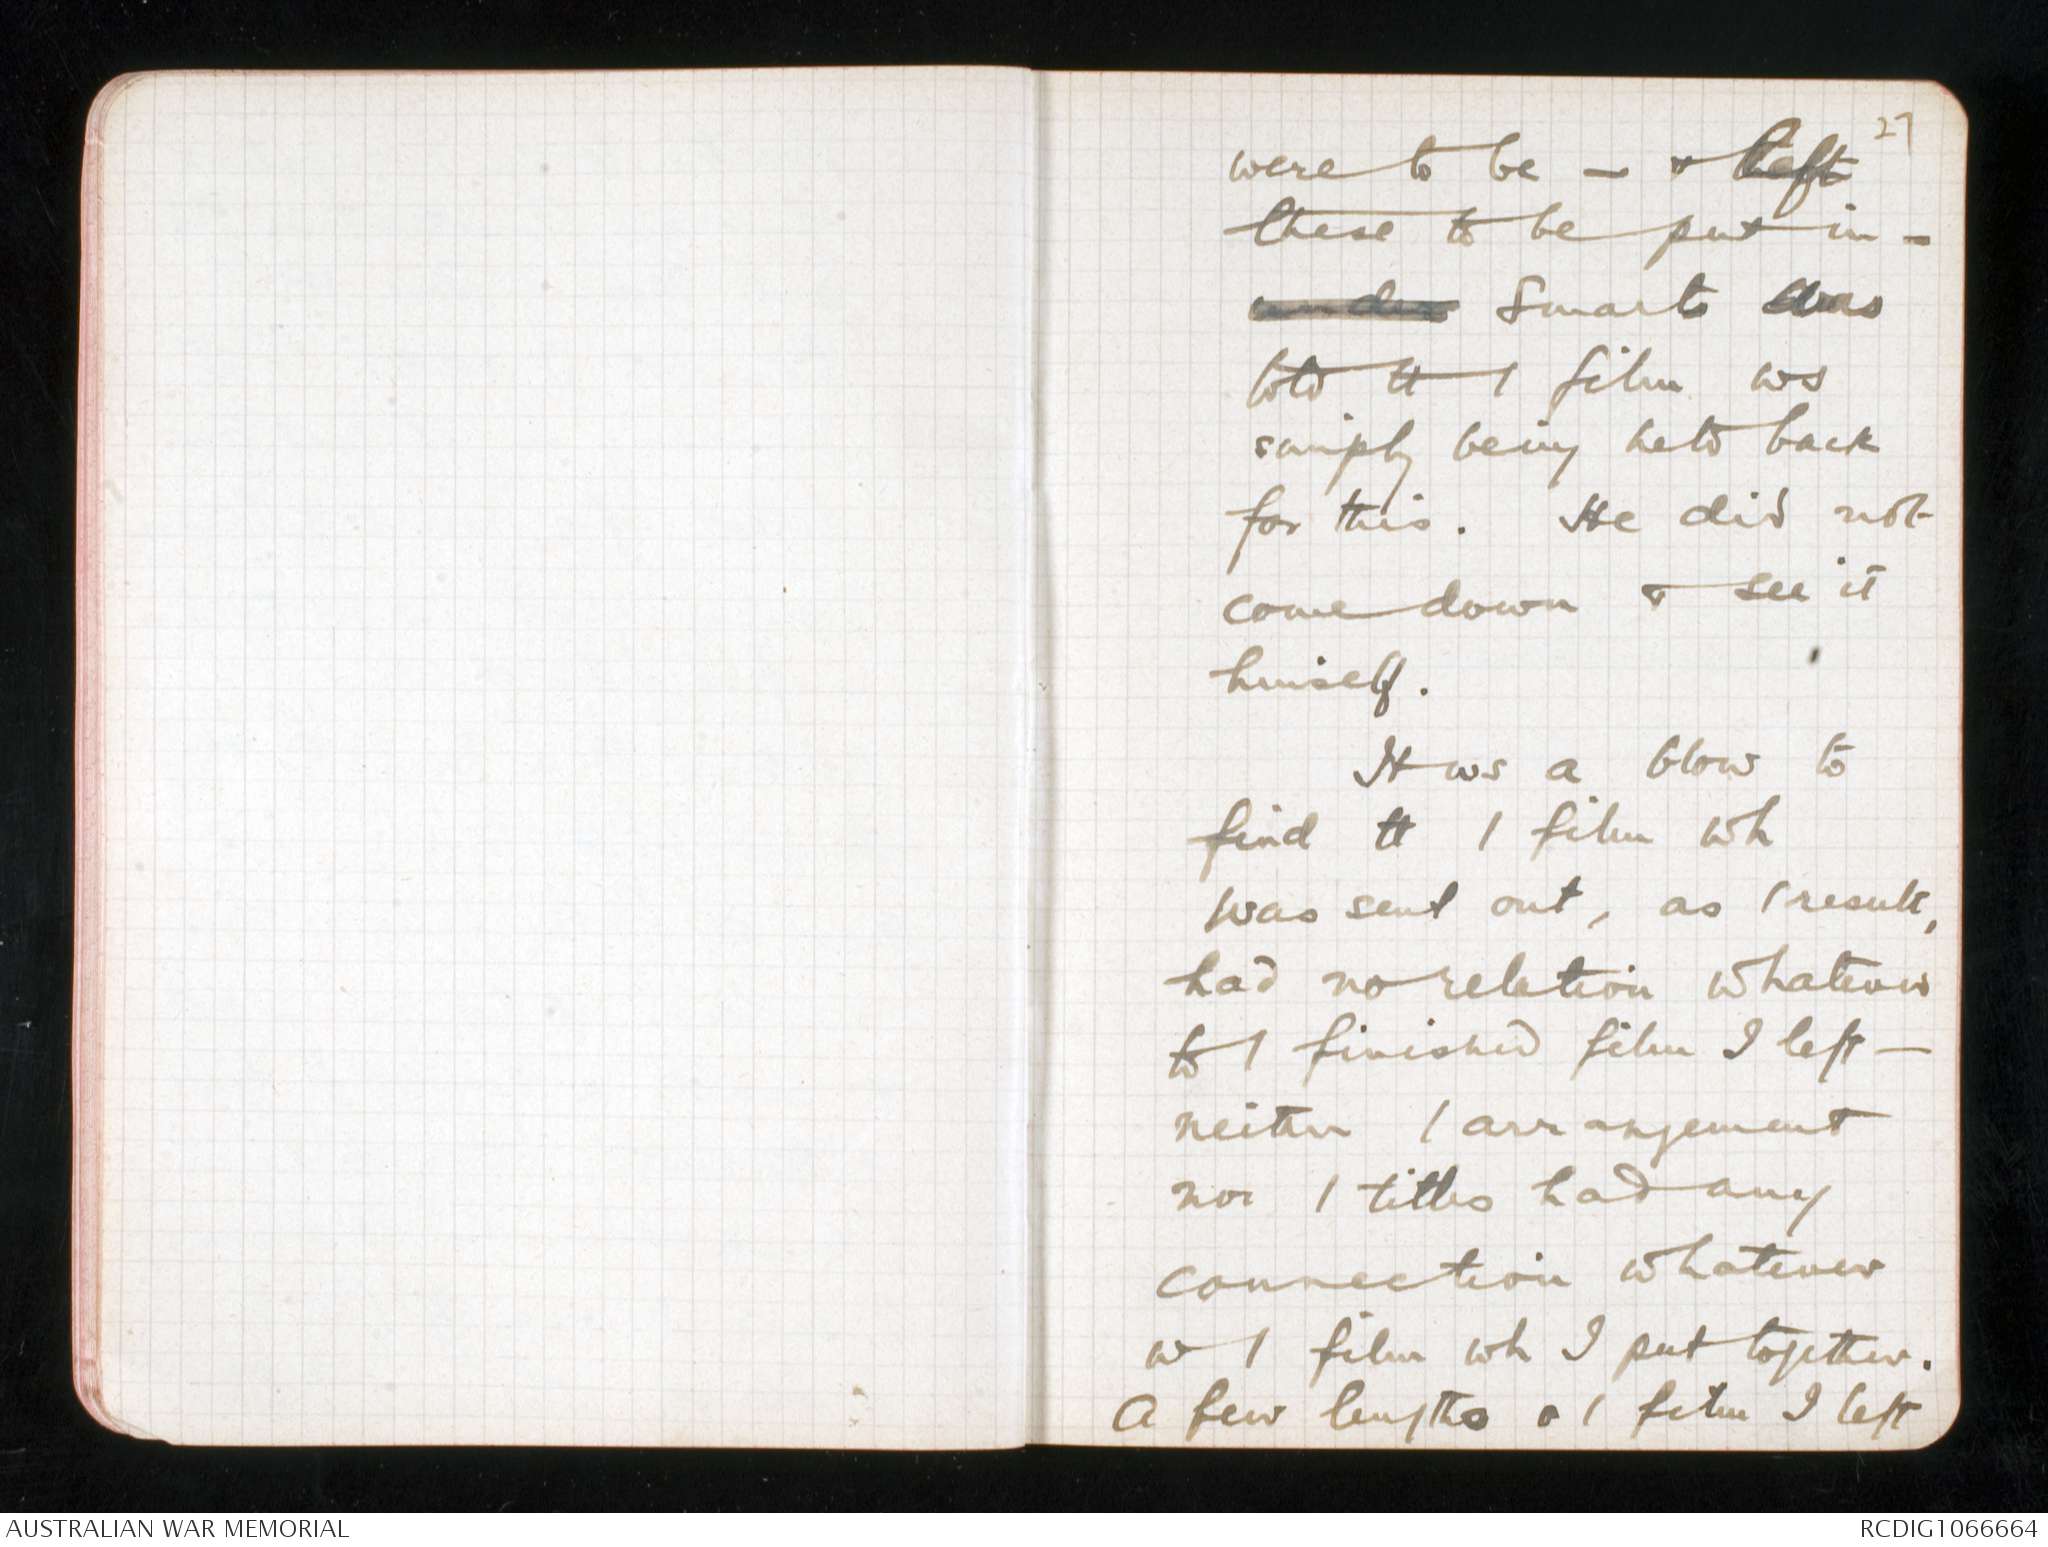 27
were to be — & left
these to be put in -
Smart was
told tt / film ws
simply being held back
for this. He did not
come down & see it
himself.
It ws a blow to
find tt / film wh
was sent out, as / result,
had no relation whatever
to / finished film I left —
neither / arrangement
nor / titles had any
connection whatever
w / film wh I put together.
A few lengths o / film I left
AUSTRALIAN WAR MEMORIAL
RCDIG1066664